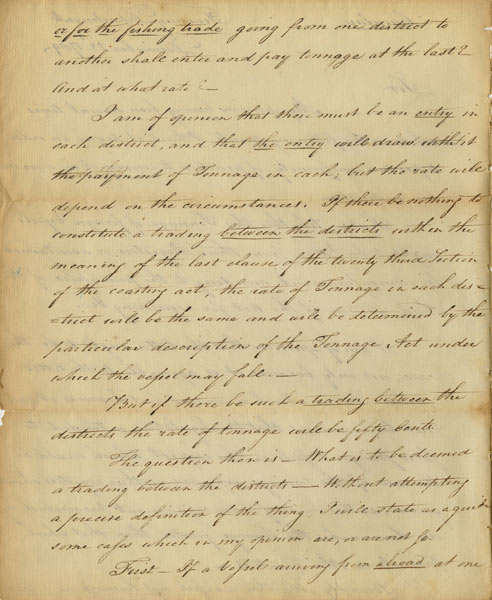 or for the fishing trade going from one district to
another shall enter and pay tonnage at the last?
And at what rate?—
I am of opinion that there must be an entry in
each district, and that the entry will draw with it
the payment of Tonnage in each; but the rate will
depend on the circumstances. If there be nothing to
constitute a trading between the districts within the
meaning of the last clause of the twenty third Section
of the coasting act, the rate of Tonnage in each dis=
=trict will be the same and will be determined by the
particular description of the Tonnage Act under
which the vessel may fall.—
But if there be such a trading between the
districts the rate of tonnage will be fifty Cents.
The question then is— What is to be deemed
a trading between the districts— Without attempting
a precise definition of the thing, I will state as a guide
some cases which in my opinion are, or are not so.
First— If a Vessels arriving from abroad at one